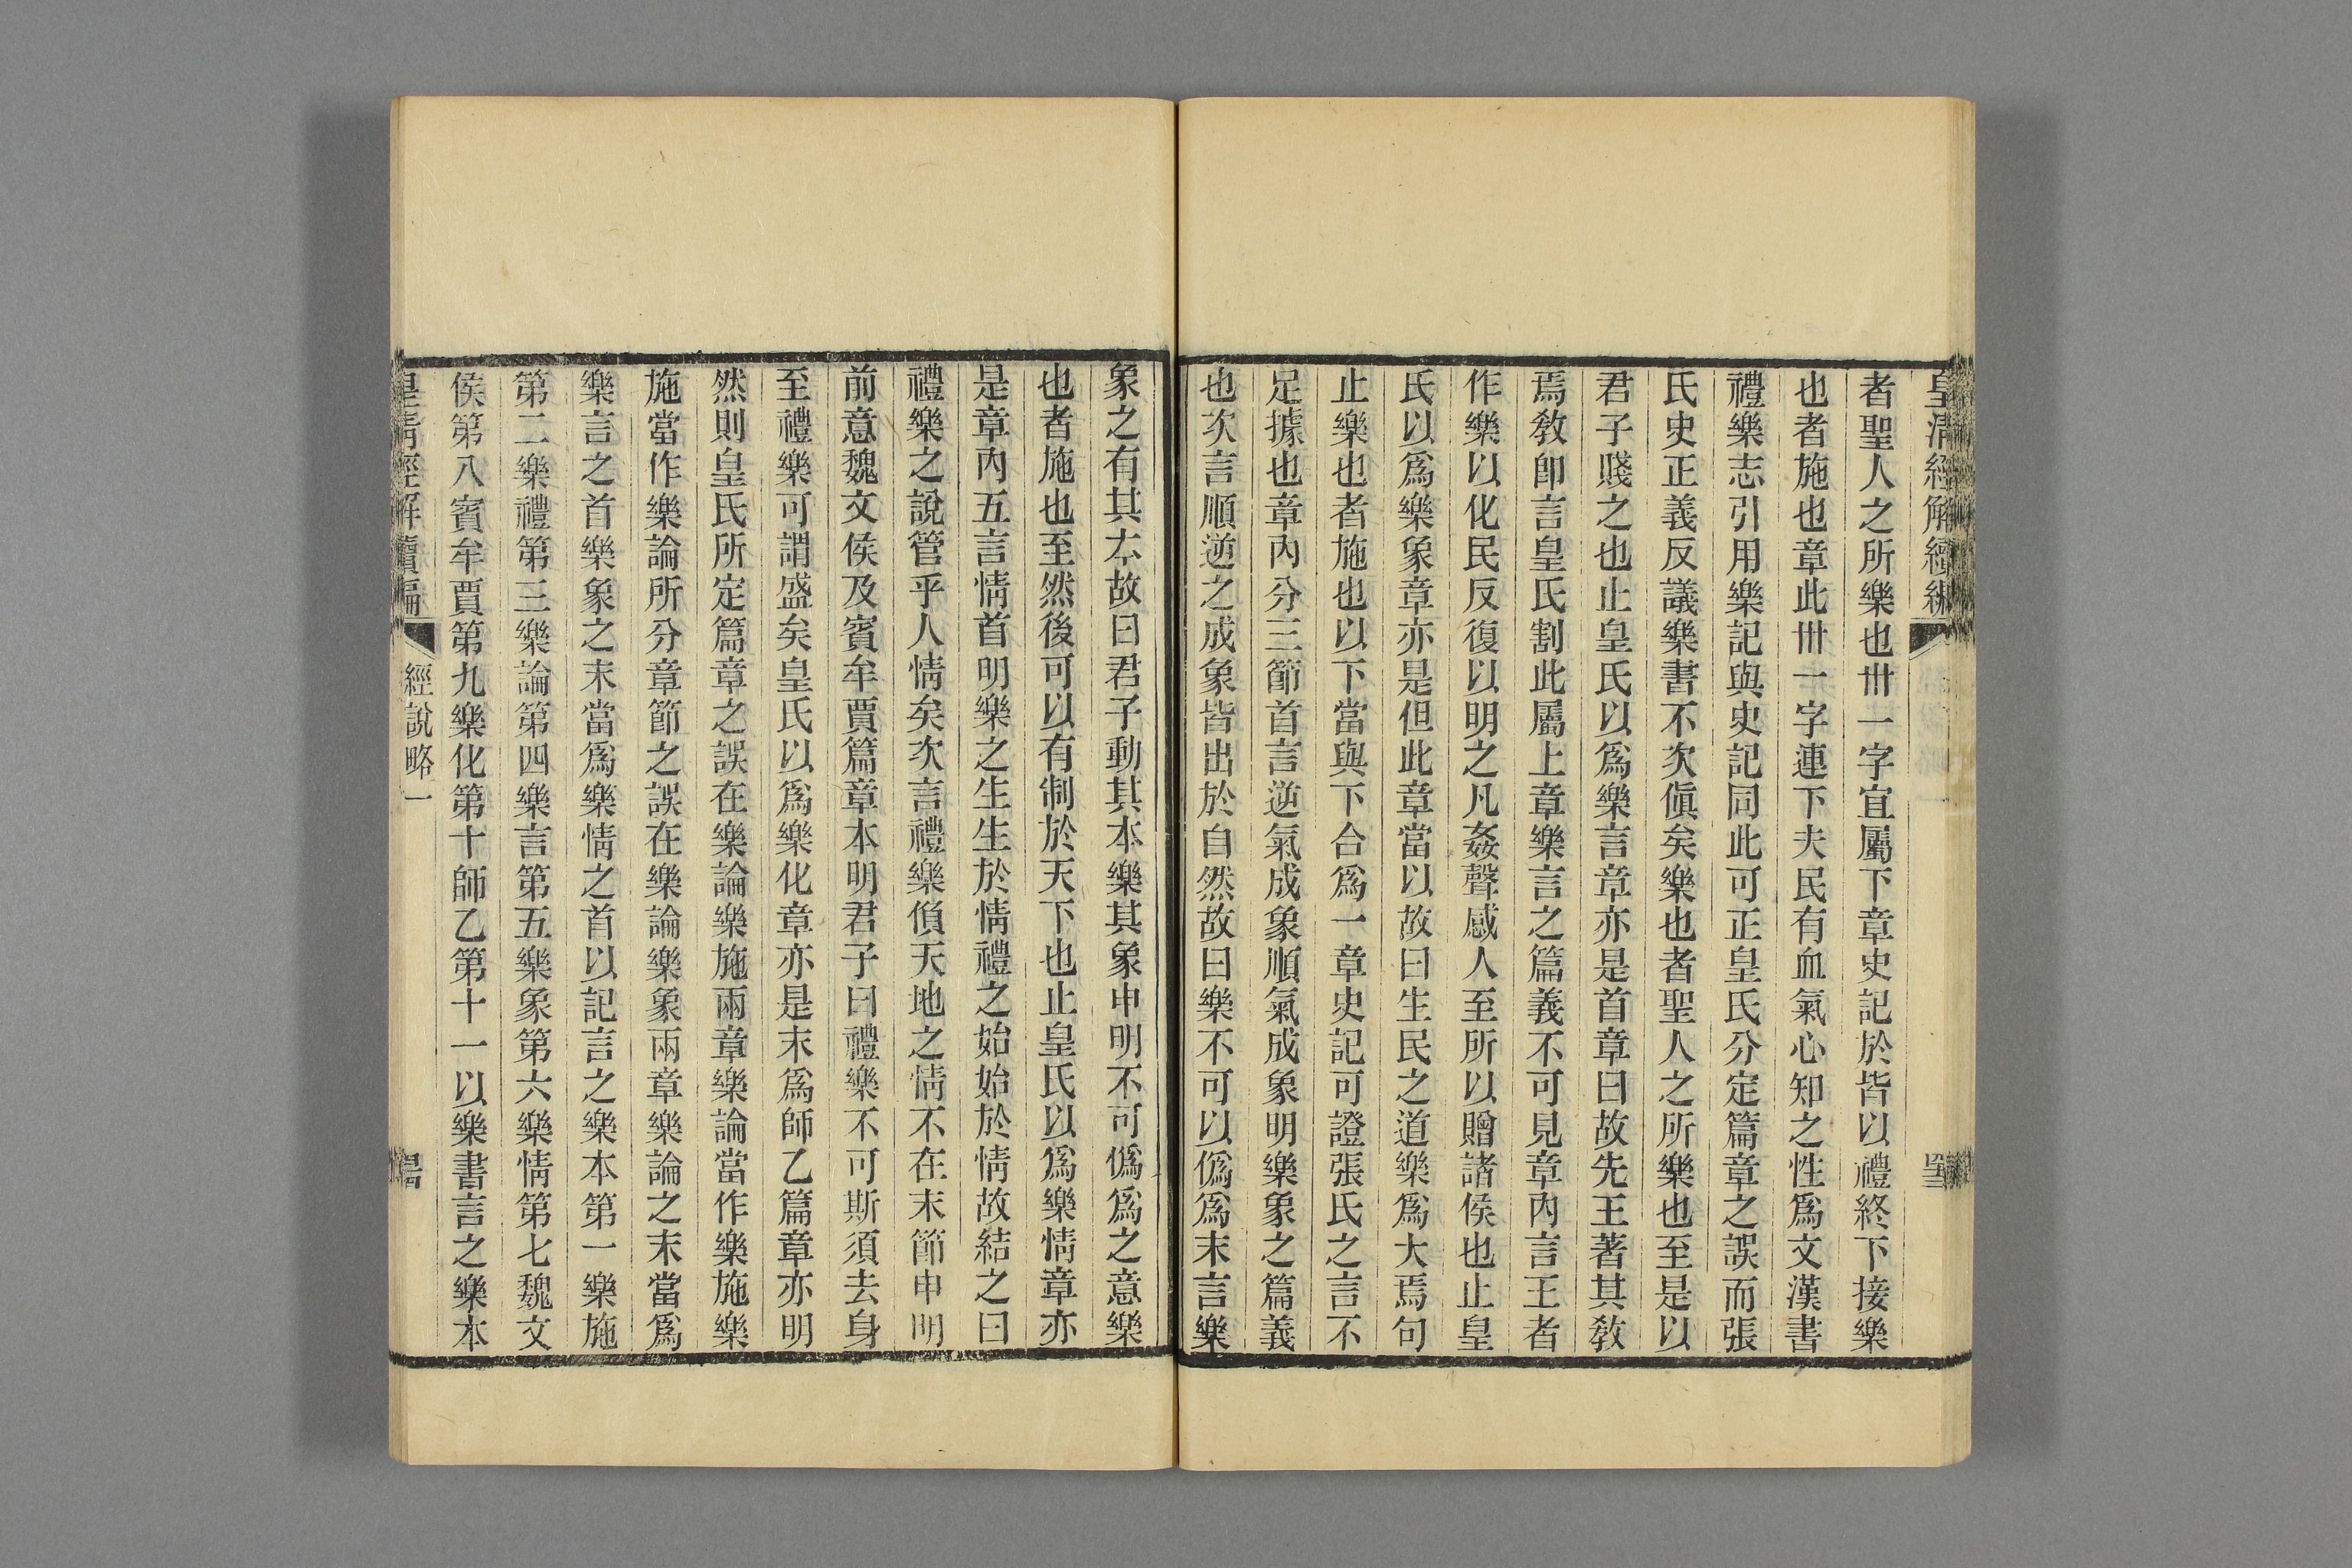 皇清經解續編
者聖人之所樂也卅一字宜屬下章史記於皆以禮終下接樂
也者施也章此卅一字連下夫民有血氣心知之性爲文漢書
禮樂志引用樂記與史記同此可正皇氏分定篇章之誤而張
氏史正義反議樂書不次傎矣樂也者聖人之所樂也至是以
君子賤之也止皇氏以爲樂言章亦是首章曰故先王著其敎
焉敎卽言皇氏割此屬上章樂言之篇義不可見章內言王者
作樂以化民反復以明之凡姦聲感人至所以贈諸侯也止皇
氏以爲樂象章亦是但此章當以故曰生民之道樂爲大焉句
止樂也者施也以下當與下合爲一章史記可證張氏之言不
足據也章內分三節首言逆氣成象順氣成象明樂象之篇義
也次言順逆之成象皆出於自然故曰樂不可以僞爲末言樂
象之有其本故曰君子動其本樂其象申明不可僞爲之意樂
也者施也至然後可以有制於天下也止皇氏以爲樂情章亦
是章內五言情首明樂之生生於情禮之始始於情故結之曰
禮樂之說管乎人情矣次言禮樂偩天地之情不在末節申明
前意魏文侯及賓牟賈篇章本明君子曰禮樂不可斯須去身
至禮樂可謂盛矣皇氏以爲樂化章亦是末爲師乙篇章亦明
然則皇氏所定篇章之誤在樂論樂施兩章樂論當作樂施樂
施當作樂論所分章節之誤在樂論樂象兩章樂論之末當爲
樂言之首樂象之末當爲樂情之首以記言之樂本第一樂施
第二樂禮第三樂論第四樂言第五樂象第六樂情第七魏文
侯第八賓牟賈第九樂化第十師乙第十一以樂書言之樂本
皇淸經解續編 經說略一